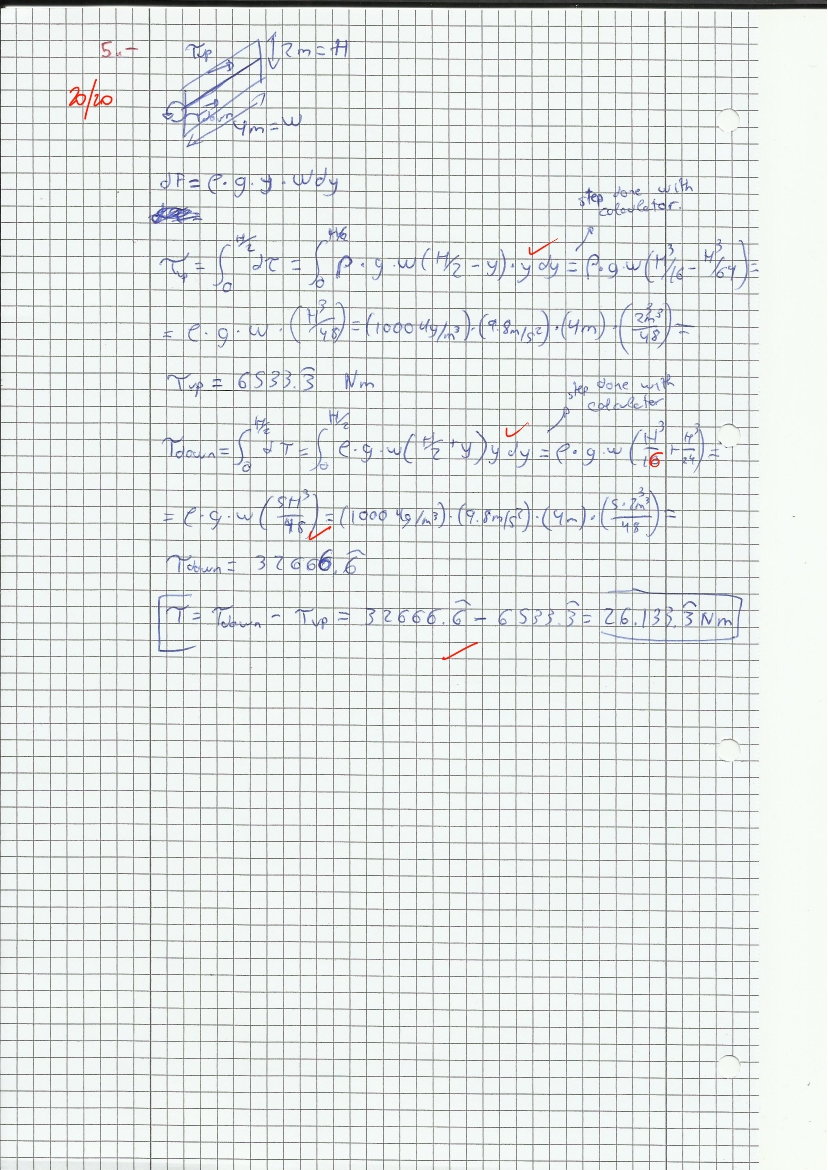 5.-
τup
2m = H
20/20
4m = W
dF = ρ·g·y·Wdy
step done with
calculator.
τup = ∫₀^{H/2} dτ = ∫₀^{H/2} ρ·g·w(H/2 - y)·y dy = ρ·g·w(H³/16 - H³/64) =
= ρ·g·w·(H³/48) = (1000 kg/m³)·(9.8m/s²)·(4m)·(2³m³/48) =
τup = 6533.3̂ Nm
step done with
calculator
τdown = ∫₀^{H/2} dτ = ∫₀^{H/2} ρ·g·w(H/2 + y)y dy = ρ·g·w(H³/16 + H³/24) =
= ρ·g·w(5H³/48) = (1000 kg/m³)·(9.8m/s²)·(4m)·(5·2³m³/48) =
τdown = 32666.6̂
τ = τdown - τup = 32666.6̂ - 6533.3̂ = 26.133.3̂ Nm